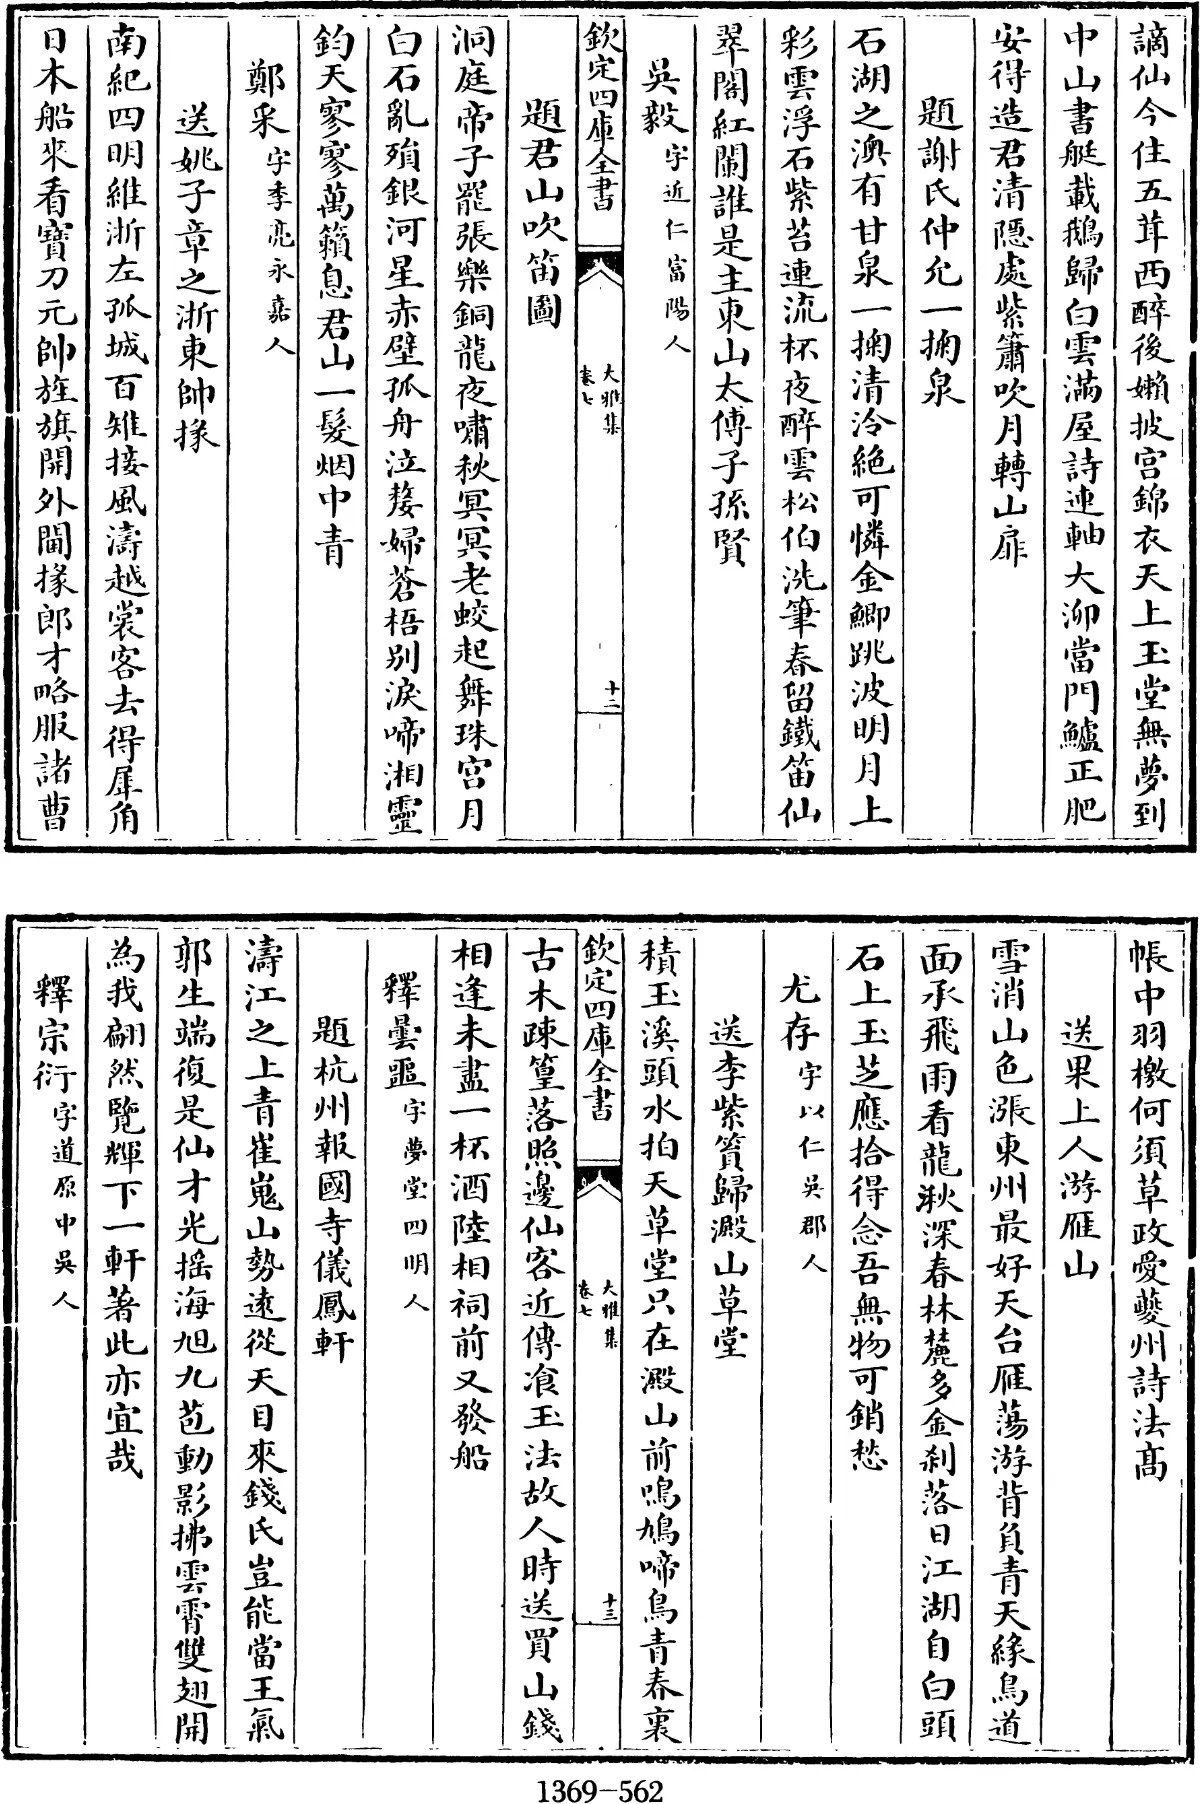 謫仙今住五茸西醉後嬾披宫錦衣天上玉堂無夢到
中山書艇載鵝歸白雲滿屋詩連軸大泖當門鱸正肥
安得造君清隱處紫簫吹月轉山扉
題謝氏仲允一掬泉
石湖之澳有甘泉一掬清泠絶可憐金鯽跳波明月上
彩雲浮石紫苔連流杯夜醉雲松伯洗筆春留鐵笛仙
翠閣紅闌誰是主東山太傅子孫賢
吳毅字近仁富陽人
欽定四庫全書
大雅集
卷七
十二
題君山吹笛圖
洞庭帝子罷張樂銅龍夜嘯秋冥冥老蛟起舞珠宫月
白石亂殞銀河星赤壁孤舟泣嫠婦蒼梧别淚啼湘靈
鈞天寥寥萬籟息君山一髮烟中青
鄭采字季亮永嘉人
送姚子章之浙東帥掾
南紀四明維浙左孤城百雉接風濤越裳客去得犀角
日木船來看寶刀元帥旌旗開外閫掾郎才略服諸曹
帳中羽檄何須草政愛夔州詩法髙
送果上人游雁山
雪消山色漲東州最好天台雁蕩游背負青天緣鳥道
面承飛雨看龍湫深春林麓多金刹落日江湖自白頭
石上玉芝應拾得念吾無物可銷愁
尤存字以仁吳郡人
送李紫篔歸澱山草堂
積玉溪頭水拍天草堂只在澱山前鳴鳩啼鳥青春裏
欽定四庫全書
大雅集
卷七
十三
古木疎篁落照邊仙客近傳飡玉法故人時送買山錢
相逢未盡一杯酒陸相祠前又發船
釋曇噩字夢堂四明人
題杭州報國寺儀鳳軒
濤江之上青崔嵬山勢逺從天目來錢氏豈能當王氣
郭生端復是仙才光摇海旭九苞動影拂雲霄雙翅開
為我翩然覽輝下一軒著此亦宜哉
釋宗衍字道原中吳人
1369-562